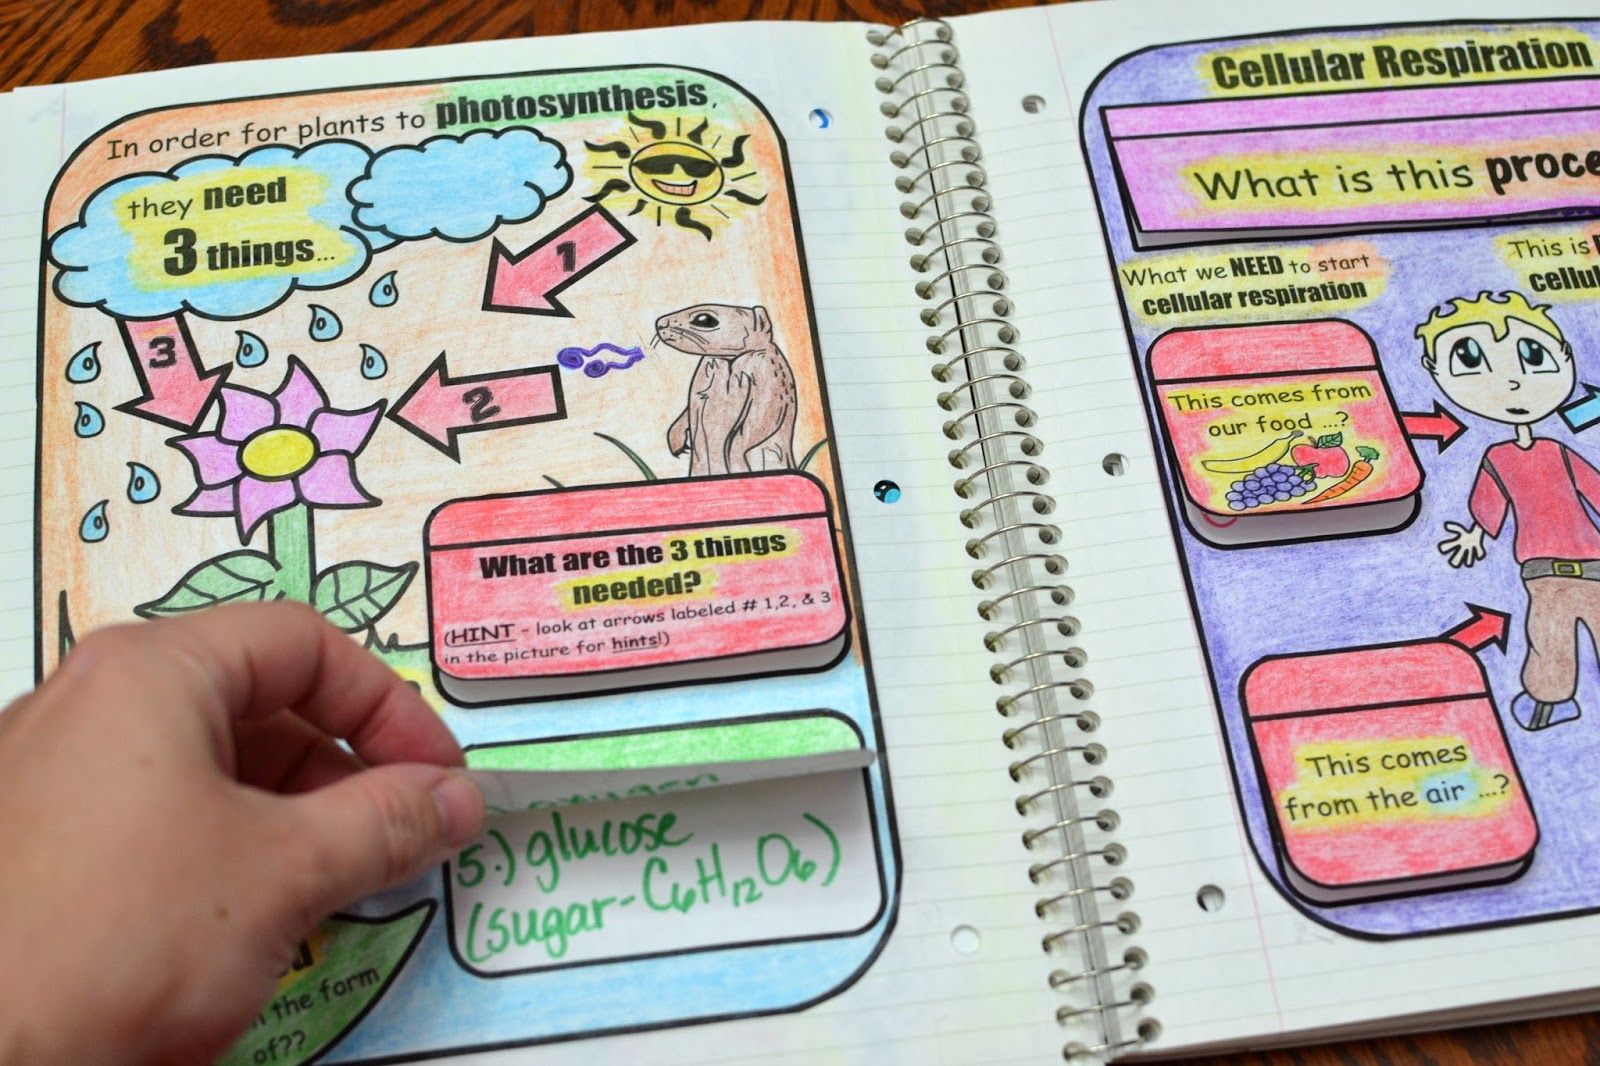 In order for plants to photosynthesis,
they need
3 things...
1
2
3
What are the 3 things
needed?
(HINT - look at arrows labeled # 1,2, & 3
in the picture for hints!)
oxygen
5.) glucose
(sugar-C₆H₁₂O₆)
the form
of??
Cellular Respiration
What is this
What we NEED to start
cellular respiration
This is
This comes from
our food ...?
This comes
from the air ...?